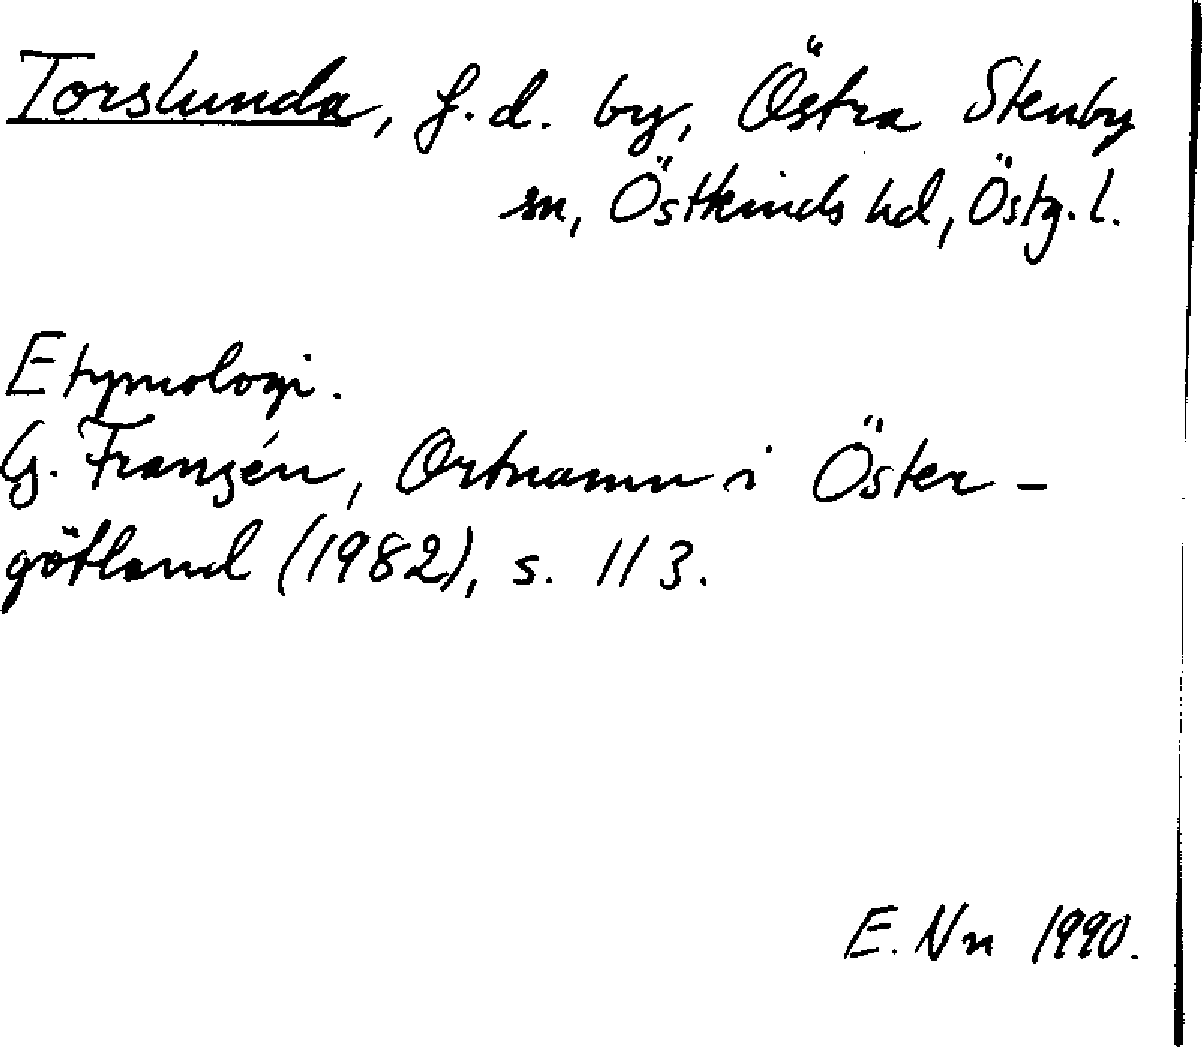 Torslunda, f.d. by, Östra Stenby
sn, Östkinds hd, Östg. l.
Etymologi.
G. Franzén, Ortnamn i Öster-
götland (1982), s. 113.
E. Nn 1990.